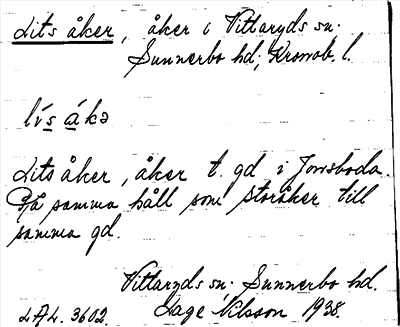 Lits åker, åker i Vittaryds sn.
Sunnerbo hd; Kronob. l.
lís ákə
Lits åker, åker t. gd i Jonsboda.
På samma håll som storåker till
samma gd.
Vittaryds sn. Sunnerbo hd.
LAL. 3602. Lage Nilsson 1938.